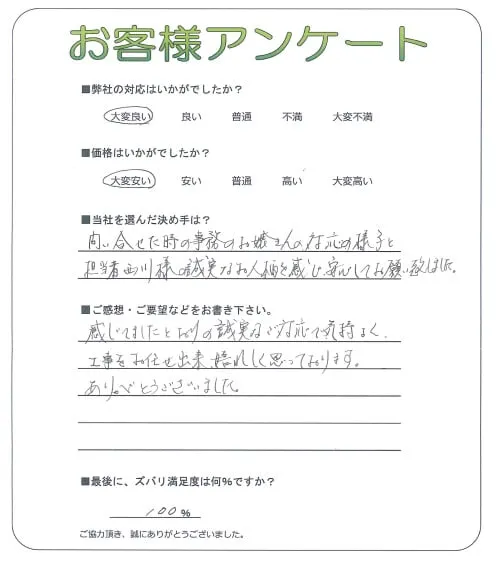 お客様アンケート
■弊社の対応はいかがでしたか？
大変良い 良い 普通 不満 大変不満
■価格はいかがでしたか？
大変安い 安い 普通 高い 大変高い
■当社を選んだ決め手は？
問い合せた時の事務のお嬢さんの対応の様子と
担当者西川様の誠実なお人柄を感じ安心してお願い致しました。
■ご感想・ご要望などをお書き下さい。
感じてましたとおりの誠実なご対応で気持よく、
工事をお任せ出来、嬉しく思っております。
ありがとうございました。
■最後に、ズバリ満足度は何％ですか？
100％
ご協力頂き、誠にありがとうございました。